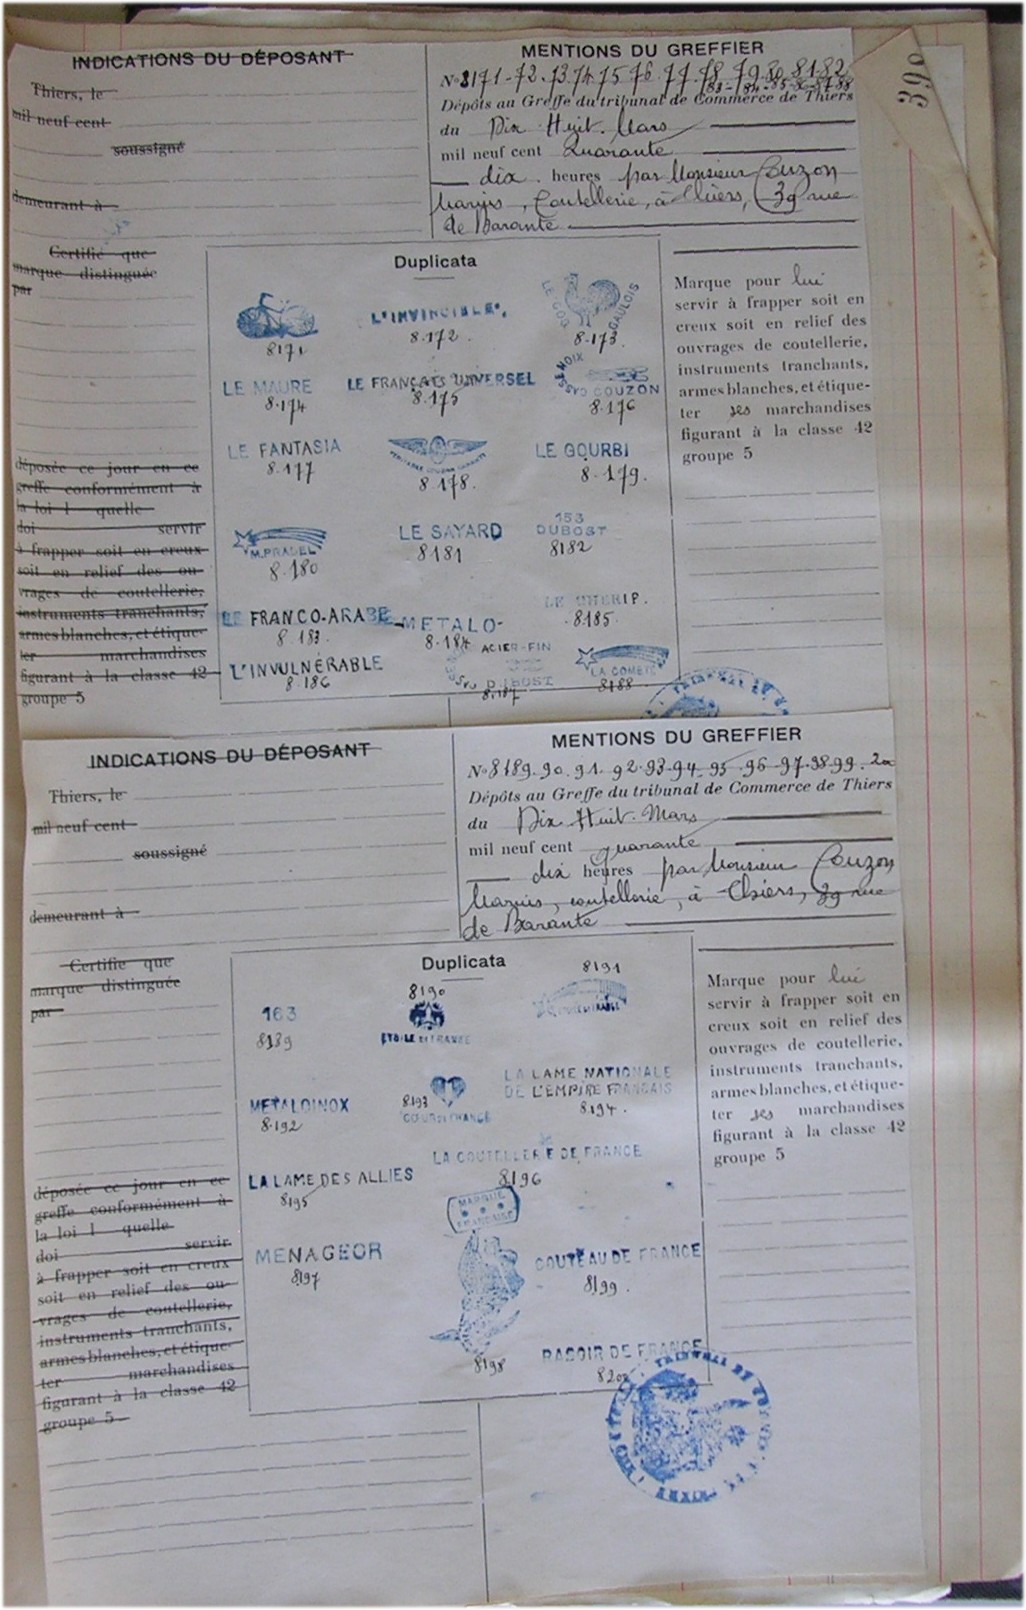 390
INDICATIONS DU DÉPOSANT
Thiers, le
mil neuf cent
soussigné
demeurant à
MENTIONS DU GREFFIER
Nos 8171-72-73.74.75.76.77.78.79.80.81-82
83-84-85-86-87-88
Dépôts au Greffe du tribunal de Commerce de Thiers
du Dix Huit. Mars
mil neuf cent Quarante
dix heures par Monsieur Couzon
Marius, Coutellerie, à Thiers, (39 rue
de Barante
Certifié que
marque distinguée
par
déposée ce jour en ce
greffe conformément à
la loi l quelle
doi servir
à frapper soit en creux
soit en relief des ou-
vrages de coutellerie,
instruments tranchants,
armes blanches, et étique-
ter marchandises
figurant à la classe 42
groupe 5
Duplicata
8171
L'INVINCIBLE
8.172
LE COQ GAULOIS
8-173.
LE MAURE
8.174
LE FRANÇAIS UNIVERSEL
8.175
COUZON
8.176
LE FANTASIA
8.177
8.178.
LE GOURBI
8.179.
M. PRADEL
8.180
LE SAYARD
8181
153
DUBOST
8182
LE FRANCO-ARABE
8.183.
METALO-
8.184
LE CHERIP.
8185.
L'INVULNÉRABLE
8.186
ACIER-FIN
DUBOST
8.187
LA COMETE
8188
Marque pour lui
servir à frapper soit en
creux soit en relief des
ouvrages de coutellerie,
instruments tranchants,
armes blanches, et étique-
ter ses marchandises
figurant à la classe 42
groupe 5
INDICATIONS DU DÉPOSANT
Thiers, le
mil neuf cent
soussigné
demeurant à
MENTIONS DU GREFFIER
Nos 8189.90.91.92.93.94.95.96.97.98.99.200
Dépôts au Greffe du tribunal de Commerce de Thiers
du Dix Huit. Mars
mil neuf cent quarante
dix heures par Monsieur Couzon
Marius, coutellerie, à Thiers, 39 rue
de Barante
Certifie que
marque distinguée
par
déposée ce jour en ce
greffe conformément à
la loi l quelle
doi servir
à frapper soit en creux
soit en relief des ou-
vrages de coutellerie,
instruments tranchants,
armes blanches, et étique-
ter marchandises
figurant à la classe 42
groupe 5
Duplicata
163
8189
8190
ETOILE DE FRANCE
8191
METALOINOX
8.192
8.193
COEUR DE FRANCE
LA LAME NATIONALE
DE L'EMPIRE FRANCAIS
8.194.
LA LAME DES ALLIES
8195
LA COUTELLERIE DE FRANCE
8196
MARQUE
FRANCAISE
MENAGEOR
8197
8198
COUTEAU DE FRANCE
8199.
RASOIR DE FRANCE
8200
Marque pour lui
servir à frapper soit en
creux soit en relief des
ouvrages de coutellerie,
instruments tranchants,
armes blanches, et étique-
ter ses marchandises
figurant à la classe 42
groupe 5